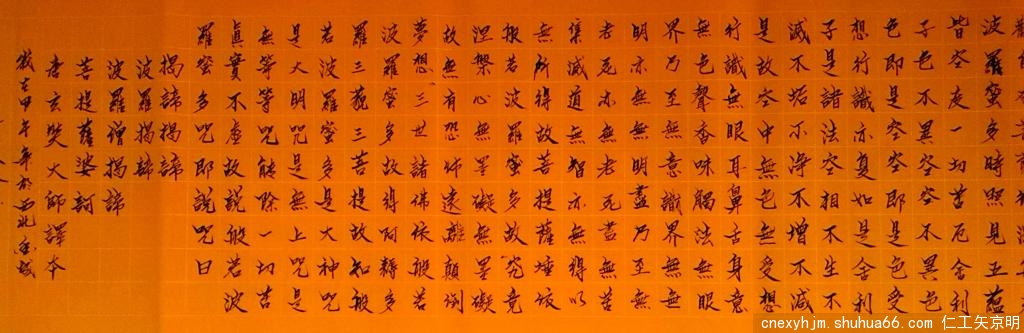 波羅蜜多時照見五蘊
皆空度一切苦厄舍利
子色不異空空不異色
色即是空空即是色受
想行識亦复如是舍利
子是諸法空相不生不
滅不垢不淨不增不減
是故空中無色無受想
行識無眼耳鼻舌身意
無色聲香味觸法無眼
界乃至無意識界無無
明亦無無明盡乃至無
老死亦無老死盡無苦
集滅道無智亦無得以
無所得故菩提薩埵依
般若波羅蜜多故究竟
涅槃心無罣礙無罣礙
故無有恐怖遠離顛倒
夢想三世諸佛依般若
波羅蜜多故得阿耨多
羅三藐三菩提故知般
若波羅蜜多是大神咒
是大明咒是無上咒是
無等等咒能除一切苦
真實不虛故說般若波
羅蜜多咒即說咒曰
揭諦揭諦
波羅揭諦
波羅僧揭諦
菩提薩婆訶
唐玄奘大師譯本
歲在甲午年於西北
cnexyhjm.shuhua66.com 仁工矢京明